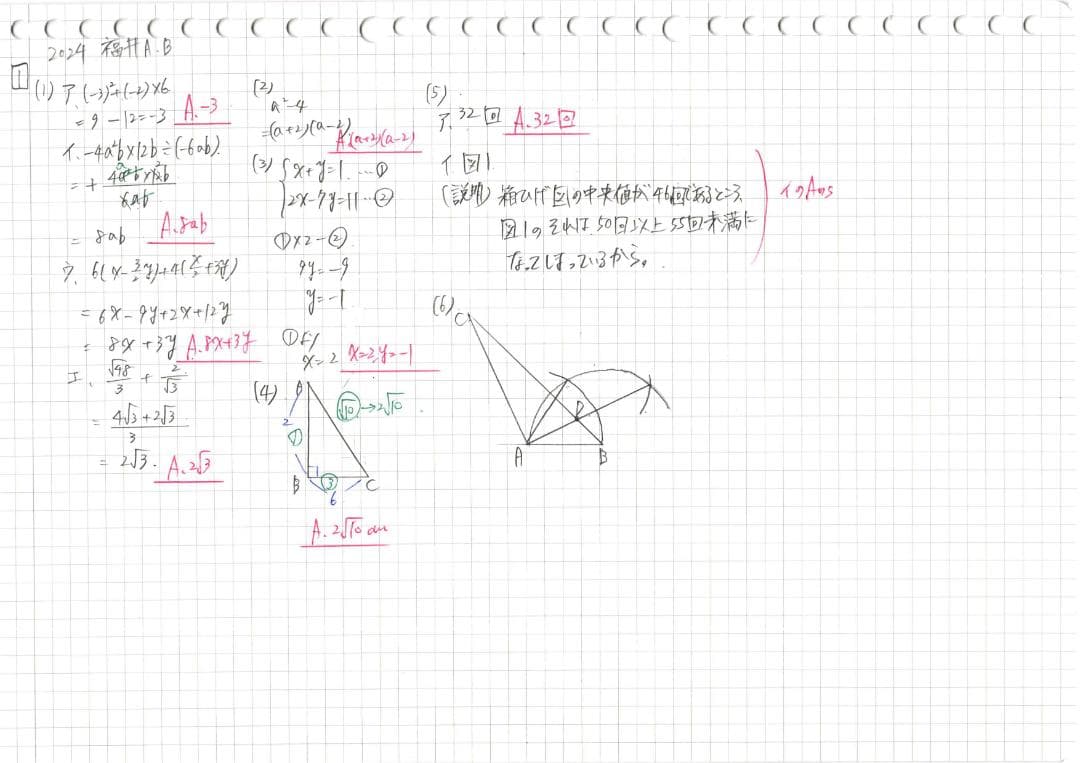 2024 福井A.B
1
(1) ア. (-3)²+(-2)×6
= 9 -12=-3 A.-3
イ. -4a²b×12b÷(-6ab)
= +
= 8ab A.8ab
ウ. 6(x-3/2y)+4(x/2+3y)
= 6x-9y+2x+12y
= 8x+3y A.8x+3y
エ. √48/3 + 2/√3
= 4√3+2√3/3
= 2√3. A.2√3
(2)
a²-4
=(a+2)(a-2)
A.(a+2)(a-2)
(3) { x+y=1. …①
2x-7y=11…②
①×2-②
9y=-9
y=-1
①より
x=2 x=2,y=-1
(4) A
√10→2√10.
2
①
B ③ C
6
A. 2√10 cm
(5)
ア. 32回 A.32回
イ 図1.
(説明) 箱ひげ図の中央値が46回であるところ、
図1のそれは50回以上55回未満に
なってしまっているから。
イのAns
(6) C
P
A B